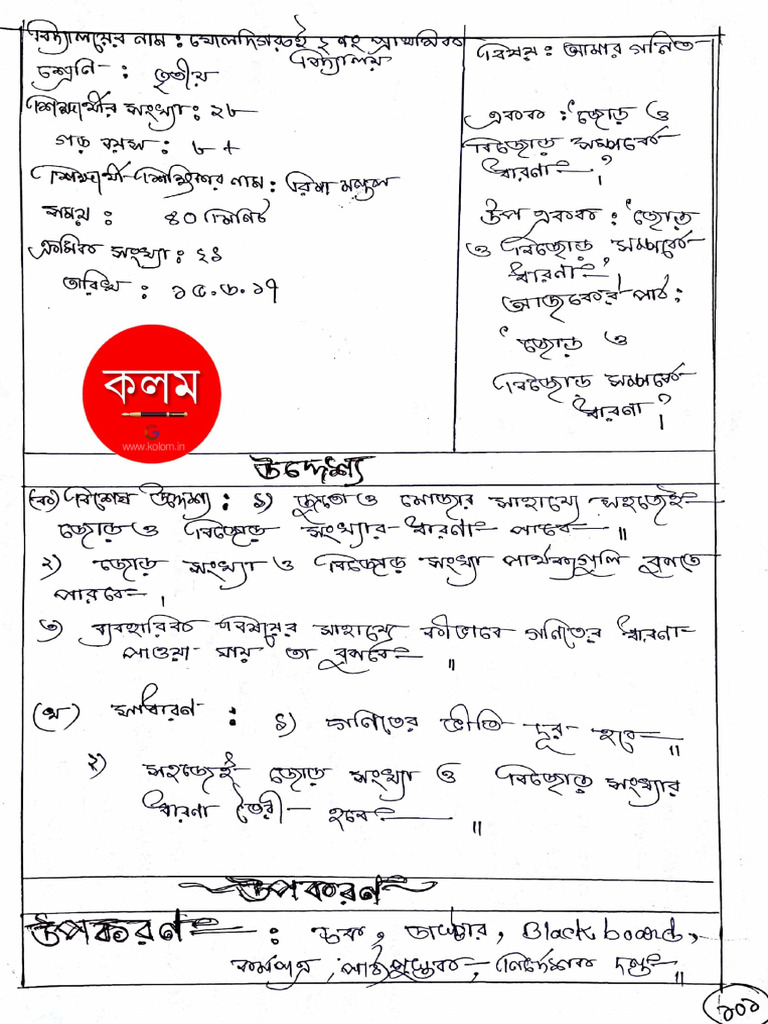 বিদ্যালয়ের নাম : খোলদিগরুই ২ নং প্রাথমিক
বিদ্যালয়
শ্রেণি : তৃতীয়
শিক্ষার্থীর সংখ্যা : ২৮
গড় বয়স : ৮ +
শিক্ষার্থী শিক্ষিকার নাম : রিমা মন্ডল
সময় : ৪০ মিনিট
ক্রমিক সংখ্যা : ২১
তারিখ : ১৫.৬.১৭
বিষয় : আমার গনিত
একক : 'জোড় ও
বিজোড় সম্পর্কে
ধারনা' ।
উপ একক : 'জোড়
ও বিজোড় সম্পর্কে
ধারনা' ।
আজকের পাঠ :
'জোড় ও
বিজোড় সম্পর্কে
ধারনা' ।
কলম
www.kolom.in
উদ্দেশ্য
(ক) বিশেষ উদ্দেশ্য : ১) জুতো ও মোজার সাহায্যে সহজেই
জোড় ও বিজোড় সংখ্যার ধারনা পাবে ॥
২) জোড় সংখ্যা ও বিজোড় সংখ্যা পার্থক্যগুলি বুঝতে
পারবে ।
৩) ব্যবহারিক বিষয়ের সাহায্যে কীভাবে গনিতের ধারনা
পাওয়া যায় তা বুঝবে ॥
(খ) সাধারণ : ১) গনিতের ভীতি দূর হবে ॥
২) সহজেই জোড় সংখ্যা ও বিজোড় সংখ্যার
ধারনা তৈরী হবে ॥
উপকরণ
উপকরণ : চক, ডাস্টার, Blackboard,
কর্মপত্র, পাঠ্যপুস্তক, নির্দেশক দন্ড ॥
১০১